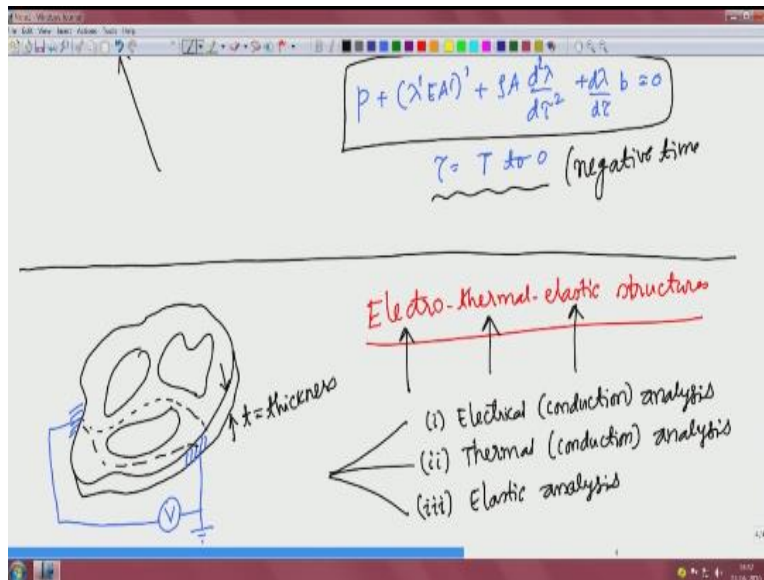 Note1 - Windows Journal
File Edit View Insert Actions Tools Help
p + (λ' EA)' + ρA d²λ/dτ² + dλ/dτ b = 0
τ = T to 0 (negative time
Electro-thermal-elastic structures
t = thickness
(i) Electrical (conduction) analysis
(ii) Thermal (conduction) analysis
(iii) Elastic analysis
V